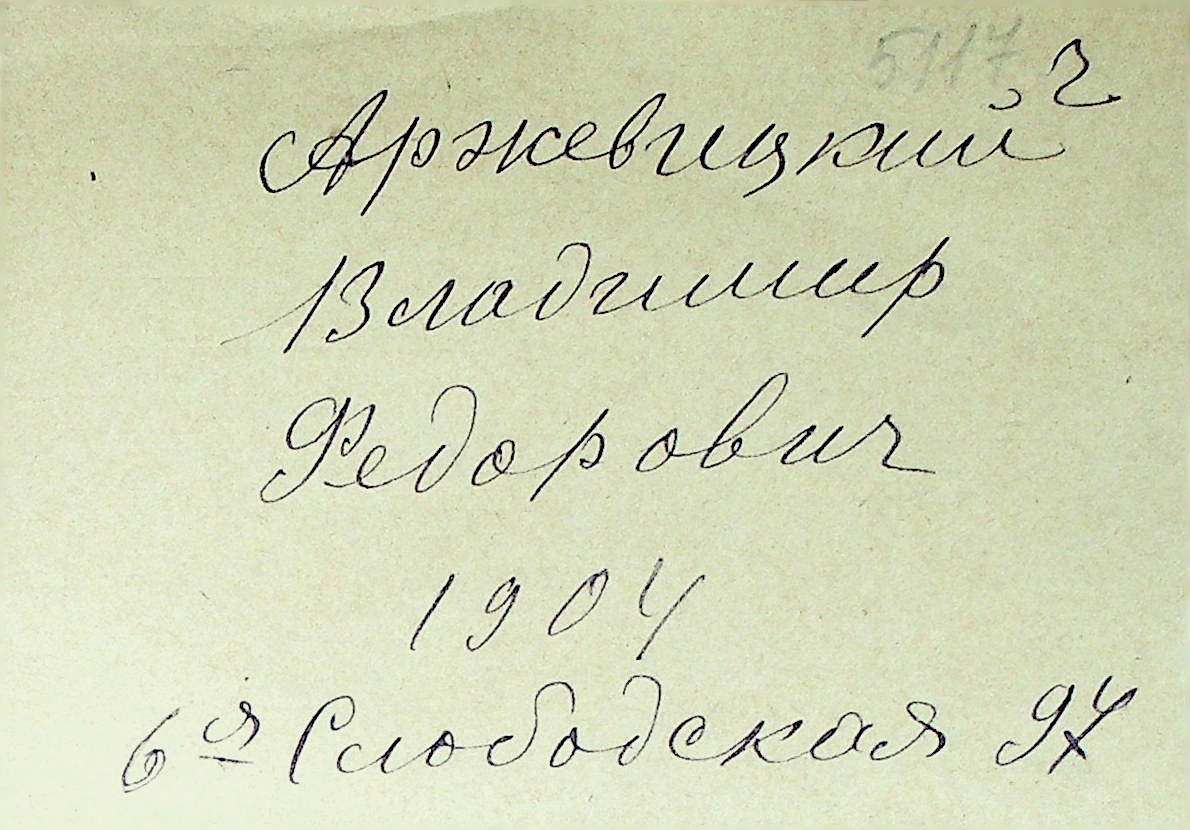 5117 2
Аржевицкий
Владимир
Федорович
1904
6ая Слободская 94